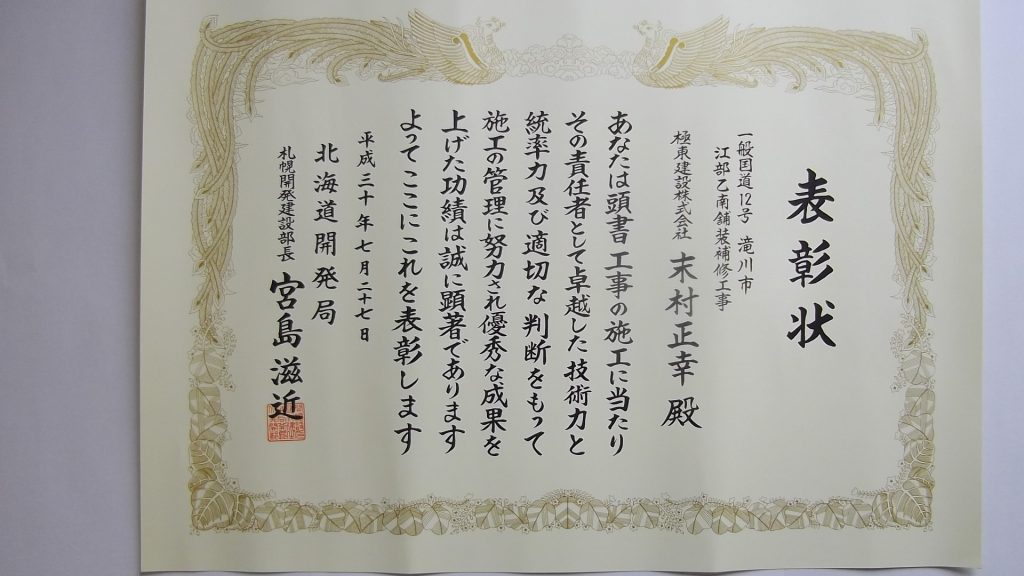 表彰状
一般国道12号 滝川市
江部乙南舗装補修工事
極東建設株式会社 末村正幸 殿
あなたは頭書工事の施工に当たり
その責任者として卓越した技術力と
統率力及び適切な判断をもって
施工の管理に努力され優秀な成果を
上げた功績は誠に顕著であります
よってここにこれを表彰します
平成三十年七月二十七日
北海道開発局
札幌開発建設部長 宮島滋近